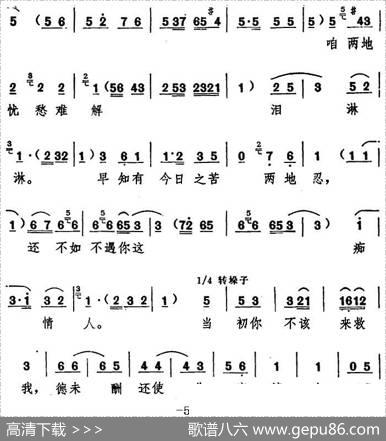 5 (5 6 | 5 2 7 6 | 5 37 65 4 | 5 65 5 5 | 5) 5 43
咱 两地
2 2 2 | 1 (56 43 | 2 53 2321 | 1) 2 5 | 3 5 2
忧 愁 难 解 泪 淋
1 · (2 32 | 1) 3 6 1 | 1·2 3 5 | 2 7 6 | 1 (1 1
淋。 早知有 今日之苦 两地 忍,
1) 6 7 6 | 6 65 3 | 3 (72 65 | 6 65 3 | 3) i
还 不如 不遇你这 痴
3·i 3 2 | 1·(2 32 | 1) 5 | 5 3 | 3 21 | 1612
1/4 转垛子
情 人。 当 初你 不该 来救
3 | 6 6 | 6 5 | 4 4 | 5 1 | 1 | 0 5
我, 德未 酬 还使
—5
高清下载 >>> 歌谱八六 www.gepu86.com